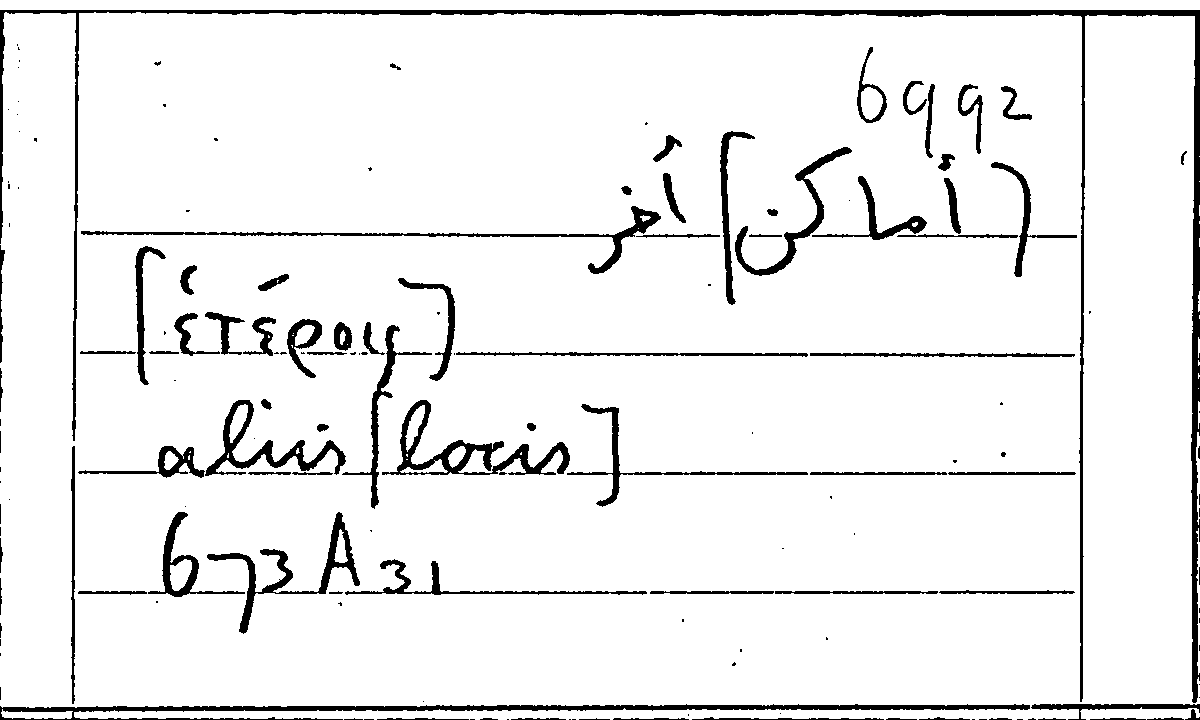 6992
[أماكن] أخر
[ἑτέροις]
aliis [locis]
673 A 31